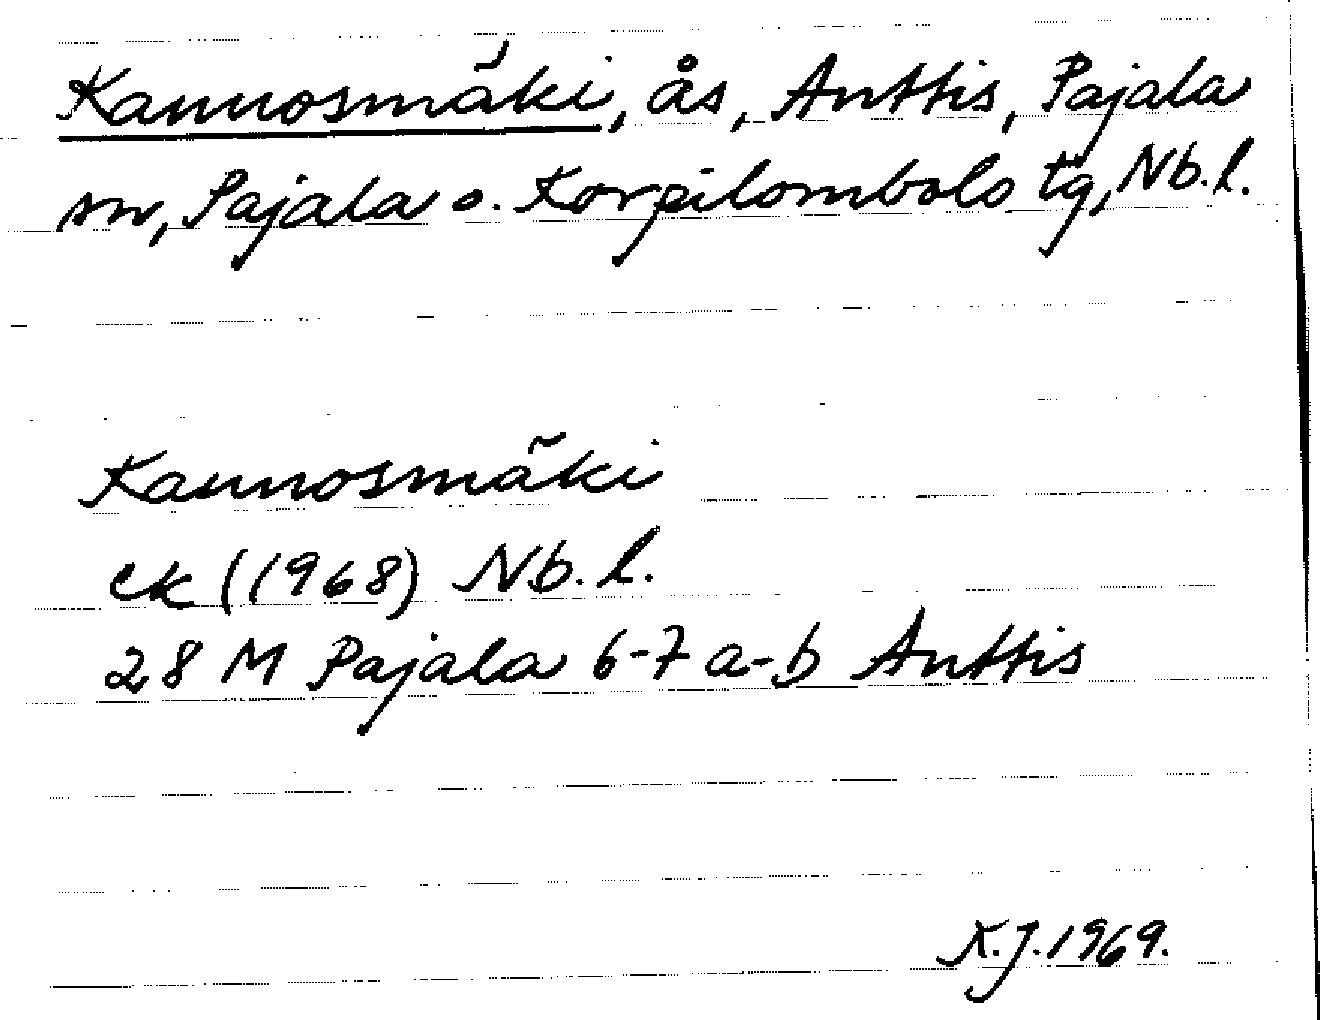 Kannosmäki, ås, Anttis, Pajala
sn, Pajala o. Korpilombolo tg, Nb.l.
Kannosmäki
ek (1968) Nb.l.
28 M Pajala 6-7 a-b Anttis
K.J. 1969.